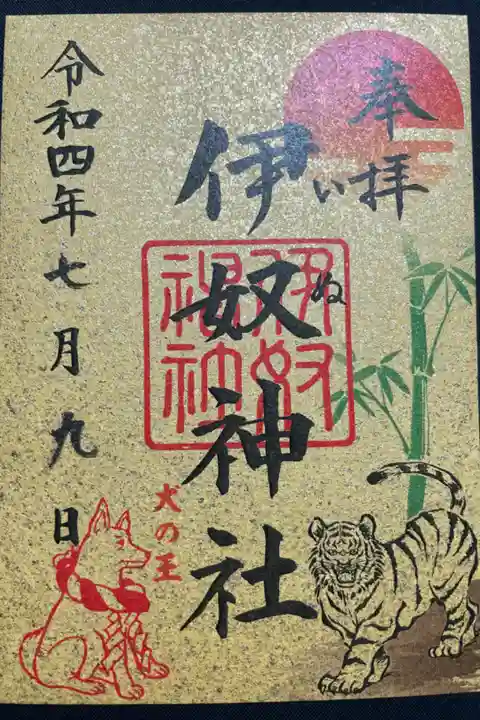 奉拝
伊奴神社
いぬ
伊奴
神社
犬の王
令和四年七月九日